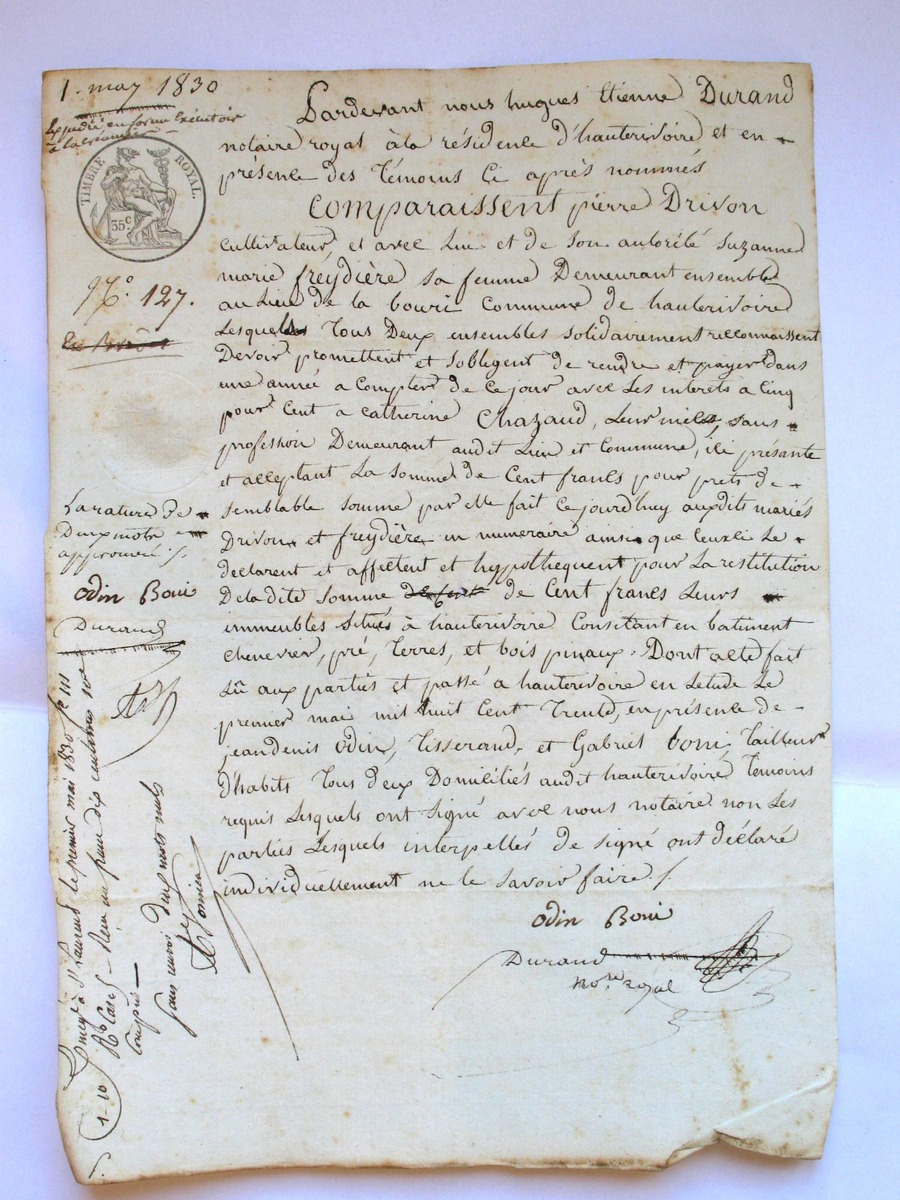 1. may 1830
Expédié en forme Exécutoire
à la créancière
TIMBRE ROYAL.
35c.
No. 127.
La rature de
Deux mots
approuvée /.
Odin Boni
Durand
Pardevant nous hugues Etienne Durand
notaire royal à la résidence d'hauterivoire et en
présence des Témoins Ci après nommés
Comparaissent pierre Drivon
Cultivateur, et avec Lui et de Son autorité Suzanne
marie freydière Sa femme Demeurant ensembles
au Lieu de la bouri Commune de hauterivoire
Lesquels Tous Deux ensembles Solidairement reconnaissent
Devoir promettent et Sobligent de rendre et payer dans
une année a Compter de Ce jour avec Les interets a Cinq
pour Cent a Catherine Chazaud, Leur sans
profession Demeurant audit Lieu et Commune, ici présante
et acceptant La Somme de Cent francs pour prets de
Semblable Somme par elle fait Ce jourdhuy auxdits mariés
Drivon et freydière en numeraire ainsi que Ceux ci Le
declarent et affectent et hypothequent pour La restitution
De la dite Somme de Cent francs Leurs
immeubles Situés à hauterivoire Consitant en batiment
Chenevier, pré, Terres, et bois pinaux. Dont acte fait
Lû aux parties et passé a hauterivoire en Letude Le
premier mai mil huit Cent Trente, en présence de
jean denis Odin, Tisserand, et Gabriel boni, Tailleur
d'habits Tous deux Domiciliés audit hauterivoire Témoins
requis Lesquels ont Signé avec nous notaire non Les
parties Lesquels interpellés de Signé ont déclaré
individuellement ne le Savoir faire /
Odin Boni
Durand
Not.re royal
Enregé à St Laurent le premier mai 1830 fo 111
Ro Case Reçu un franc dix centimes
Compris
Sans renvoi deux mots nuls
1-10